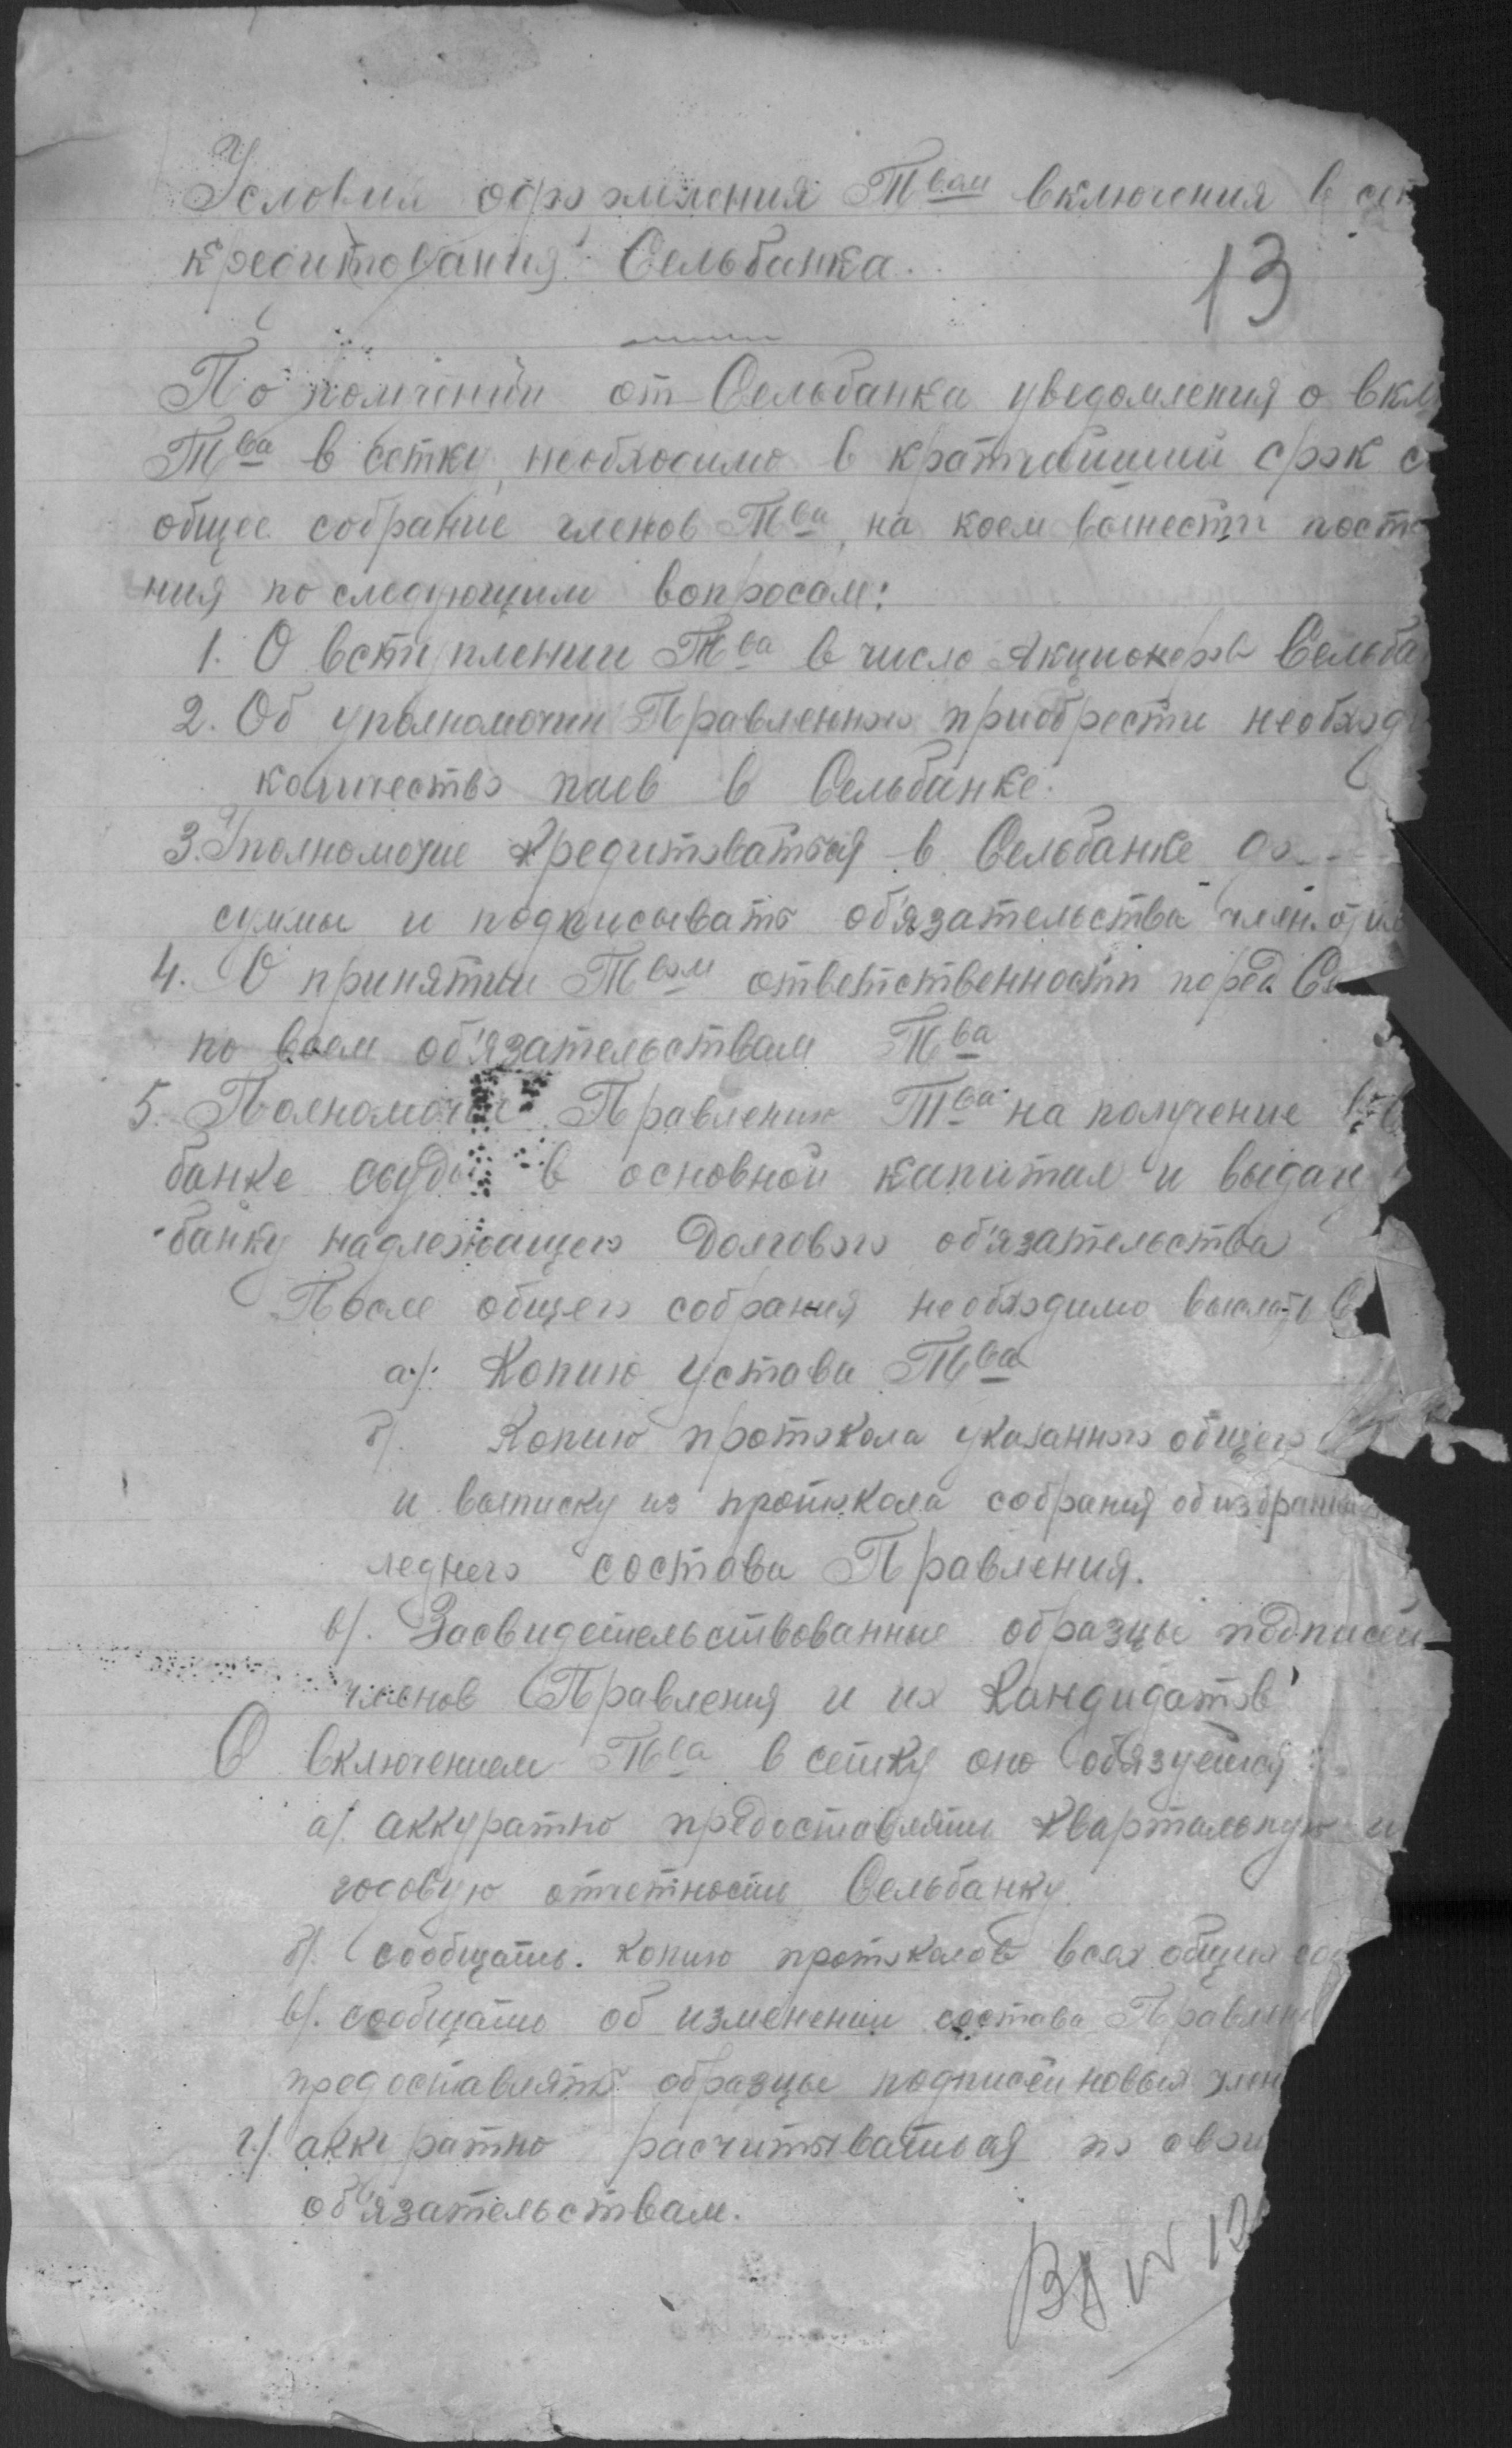 Условия оформления Твом включения в сет
кредитования Сельбанка.
13
По получении от Сельбанка уведомления о вкл
Тва в сетку, необходимо в кратчайший срок с
общее собрание членов Тва, на коем вынести пост
ния по следующим вопросам:
1. О вступлении Тва в число Акционеров Сельба
2. Об уполномочии Правлению приобрести необход
количество паев в Сельбанке.
3. Уполномочие кредитоваться в Сельбанке до
суммы и подписывать об'язательства член.
4. О принятии Твом ответственности перед Се
по всем об'язательствам Тва
5. Полномочие Правлению Тва на получение в
банке ссуды в основной капитал и выдачи
банку надлежащего Долгового об'язательства
После общего собрания необходимо выслать в
а/. Копию устава Тва
б/. Копию протокола указанного общего
и выписку из протокола собрания об избрании
леднего состава Правления.
в/. Засвидетельствованные образцы подписей
членов Правления и их Кандидатов
С включением Тва в сетку оно обязуется:
а/. аккуратно предоставлять квартальную и
годовую отчетность Сельбанку.
б/. сообщать. копию протоколов всех общих соб
в/. сообщать об изменении состава Правлени
предоставлять образцы подписей новых член
г./. аккуратно расчитываться по свои
об'язательствам.